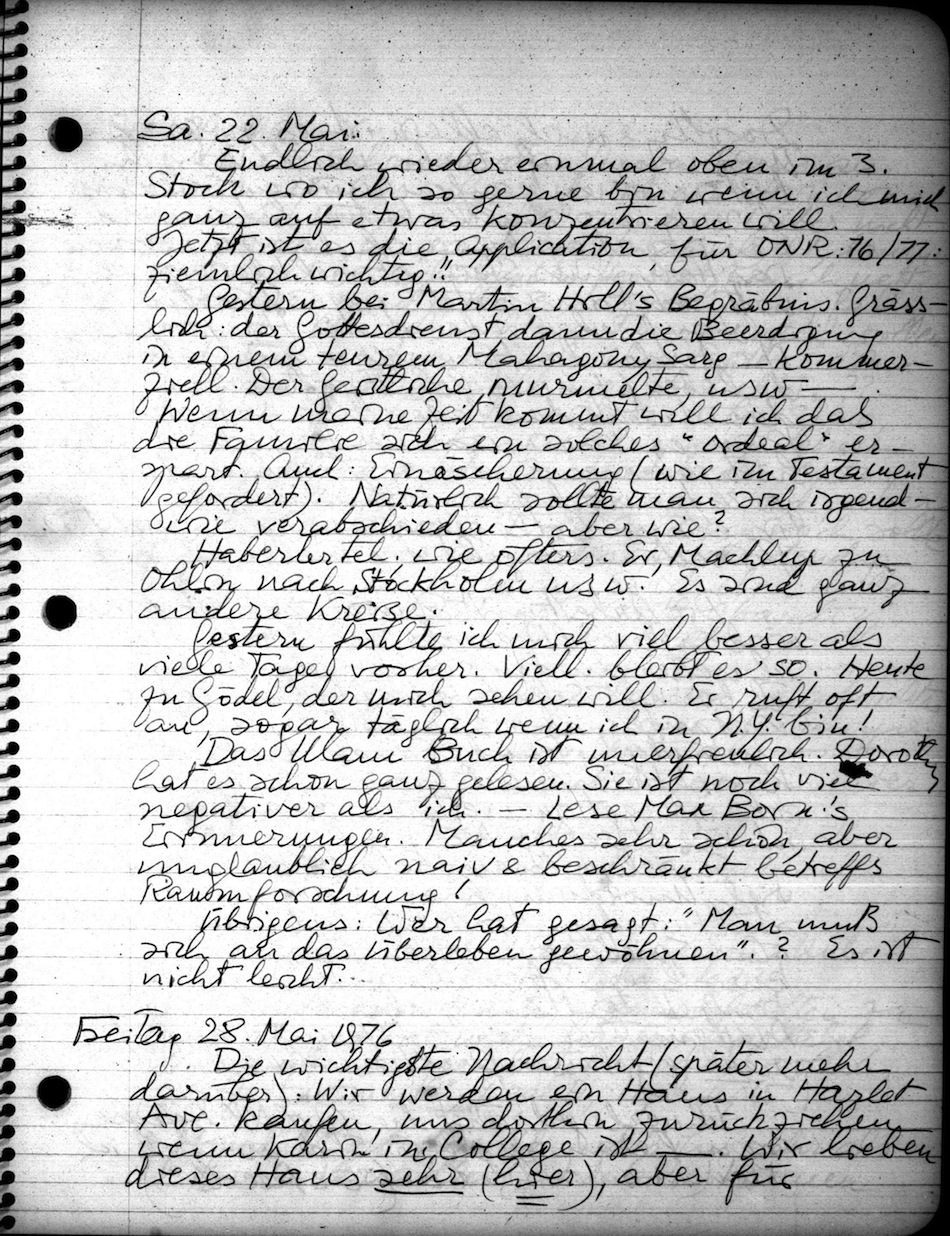 Sa. 22. Mai:
Endlich wieder einmal oben im 3.
Stock wo ich so gerne bin wenn ich mich
ganz auf etwas konzentrieren will.
Jetzt ist es die „Application" für ONR: 76/77:
ziemlich wichtig!!
Gestern bei Martin Holl's Begräbnis. Gräss-
lich: der Gottesdienst dann die Beerdigung
in einem teuren Mahagony Sarg — kommer-
ziell. Der Geistliche „murmelte" usw —.
Wenn meine Zeit kommt will ich daß
die Familie sich ein solches "ordeal" er-
spart. Auch: Einäscherung (wie im Testament
gefordert). Natürlich sollte man sich irgend-
wie verabschieden — aber wie?
Haberler tel. wie öfters. Er, Machlup zu
Ohlin nach Stockholm usw. Es sind ganz
andere Kreise.
Gestern fühlte ich mich viel besser als
viele Tage vorher. Viell. bleibt es so. Heute
zu Gödel, der mich sehen will. Er ruft oft
an, sogar täglich wenn ich in N.Y. bin!
Das Ulam Buch ist unerfreulich. Dorothy
hat es schon ganz gelesen. Sie ist noch viel
negativer als ich. — Lese Max Born's
Erinnerungen. Manches sehr schön, aber
unglaublich naiv & beschränkt betreffs
Raumforschung!
Übrigens: Wer hat gesagt: "Man muß
sich an das Überleben gewöhnen".? Es ist
nicht leicht..
Freitag 28. Mai 1976
Die wichtigste Nachricht (später mehr
darüber): Wir werden ein Haus in
Ave. kaufen, uns dorthin zurückziehen
wenn Karin in College ist —. Wir lieben
dieses Haus sehr (hier), aber für